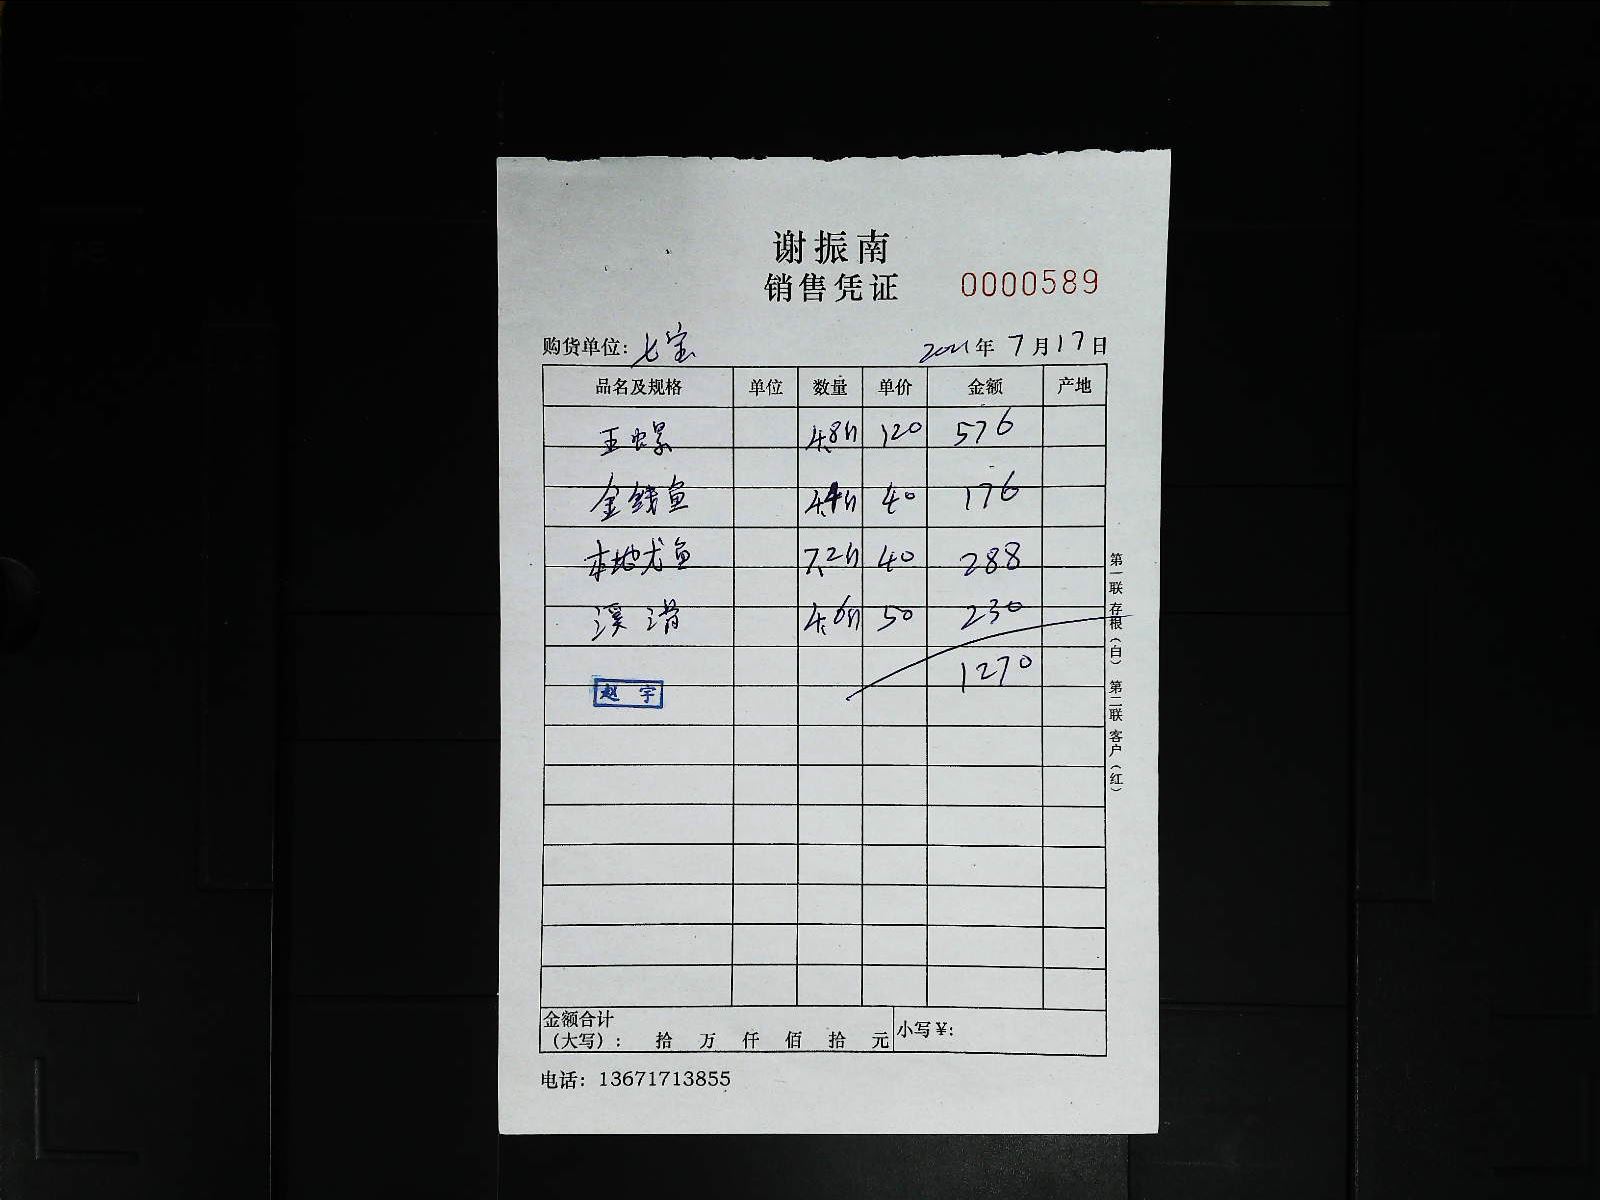 谢振南
销售凭证 0000589
购货单位：七宝 2021年7月17日
品名及规格 单位 数量 单价 金额 产地
玉螺 4.8斤 120 576
金钱鱼 4.4斤 40 176
本地尤鱼 7.2斤 40 288
溪滑 4.6斤 50 230
1270
赵宇
第一联 存根（白） 第二联 客户（红）
金额合计
（大写）： 拾 万 仟 佰 拾 元 小写￥:
电话：13671713855